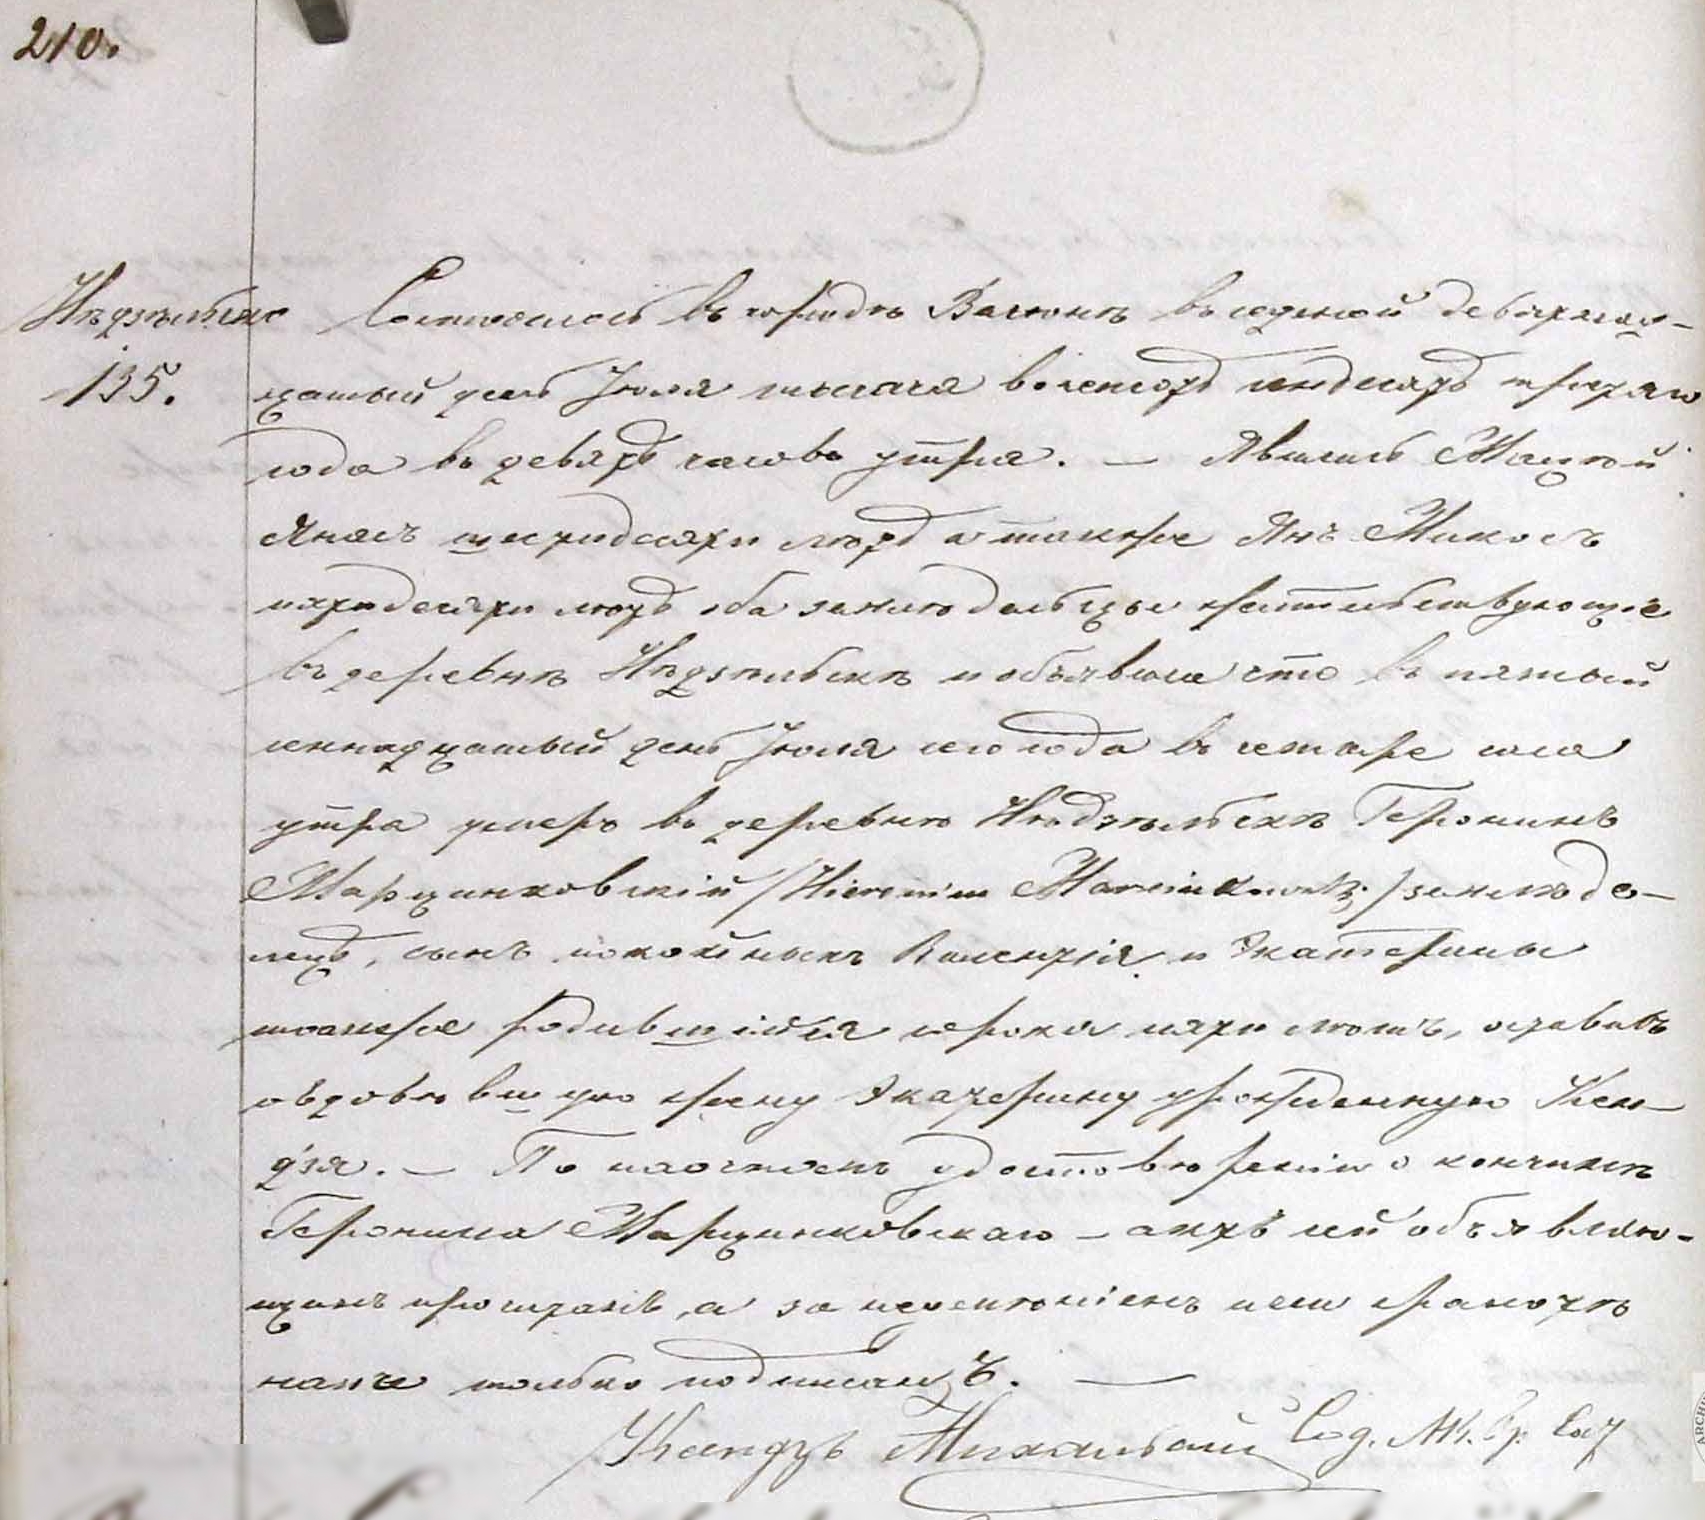 210.
Нѣдзѣльско
135.
Состоялось въ городѣ Велюнѣ восемной девятнад-
цатый день Іюля тысяча восемсотъ семдесятъ третяго
года въ девять часовъ утра. — Явились Мацѣй
шестидесяти лѣтъ а также Янъ Микосъ
пятидесяти лѣтъ оба земледѣльцы жительствующіе
въ деревнѣ Нѣдзѣльскѣ и объявили что въ
день Іюля сего года въ четыре часа
утра умеръ въ деревню Нѣдзѣльскѣ Геронимъ
Марцинковскій /Hieronim Marcinkowski/ земледѣ-
лецъ, сынъ покойныхъ Валентія и Экатерины
тамже родившійся сорокъ пяти лѣтъ, оставивъ
овдовѣвшую жену Экатерину урожденную Кен-
дзя. — По наочномъ удостовѣреніи о кончинѣ
Геронима Марцинковскаго — актъ сей объявляю-
щимъ прочтанъ, а за неумѣніемъ ими грамотѣ
нами только подписанъ. —
Ксендзъ Михальскій Сод. Ак. Гр. Сос.